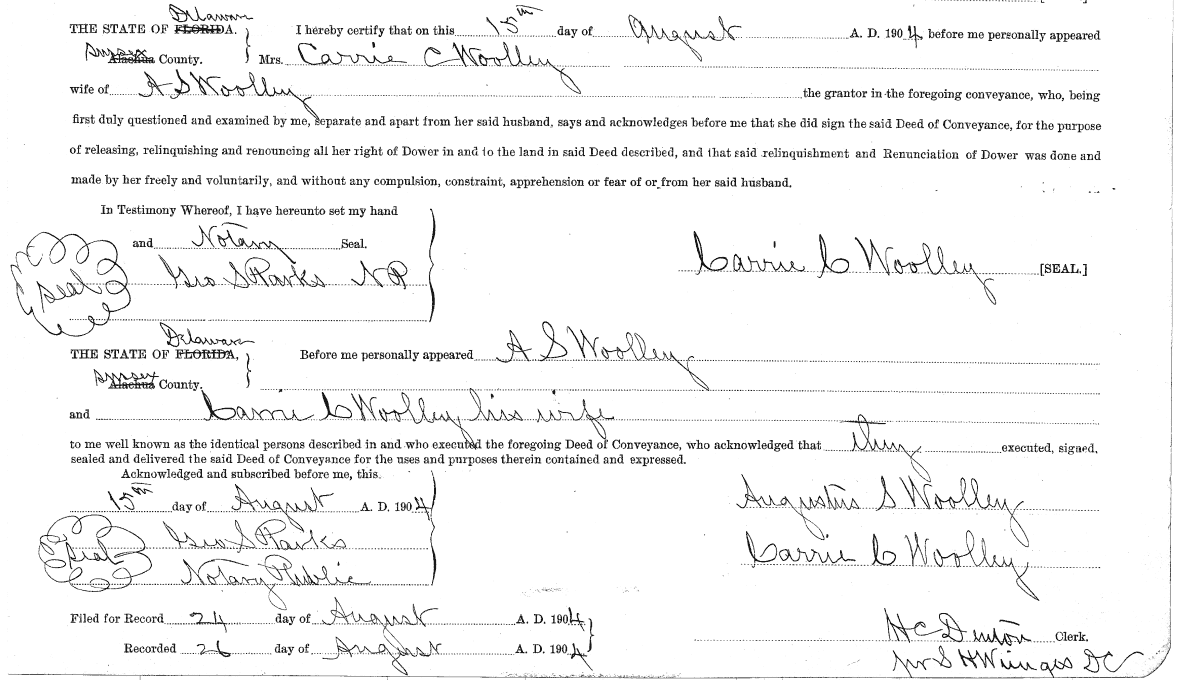 Delaware
THE STATE OF FLORIDA. I hereby certify that on this 15th day of August A. D. 1904 before me personally appeared
Sussex
Alachua County. Mrs. Carrie C Woolley
wife of A S Woolley the grantor in the foregoing conveyance, who, being
first duly questioned and examined by me, separate and apart from her said husband, says and acknowledges before me that she did sign the said Deed of Conveyance, for the purpose
of releasing, relinquishing and renouncing all her right of Dower in and to the land in said Deed described, and that said relinquishment and Renunciation of Dower was done and
made by her freely and voluntarily, and without any compulsion, constraint, apprehension or fear of or from her said husband.
In Testimony Whereof, I have hereunto set my hand
and Notary Seal.
Seal Geo S Parks NP
Carrie C Woolley [SEAL.]
Delaware
THE STATE OF FLORIDA, Before me personally appeared A S Woolley
Sussex
Alachua County.
and Carrie C Woolley his wife
to me well known as the identical persons described in and who executed the foregoing Deed of Conveyance, who acknowledged that they executed, signed,
sealed and delivered the said Deed of Conveyance for the uses and purposes therein contained and expressed.
Acknowledged and subscribed before me, this.
15th day of August A. D. 1904
Augustus S Woolley
Seal Geo S Parks
Carrie C Woolley
Notary Public
Filed for Record 24 day of August A. D. 1904
H C Denton Clerk.
Recorded 26 day of August A. D. 1904
per S H Wienges DC